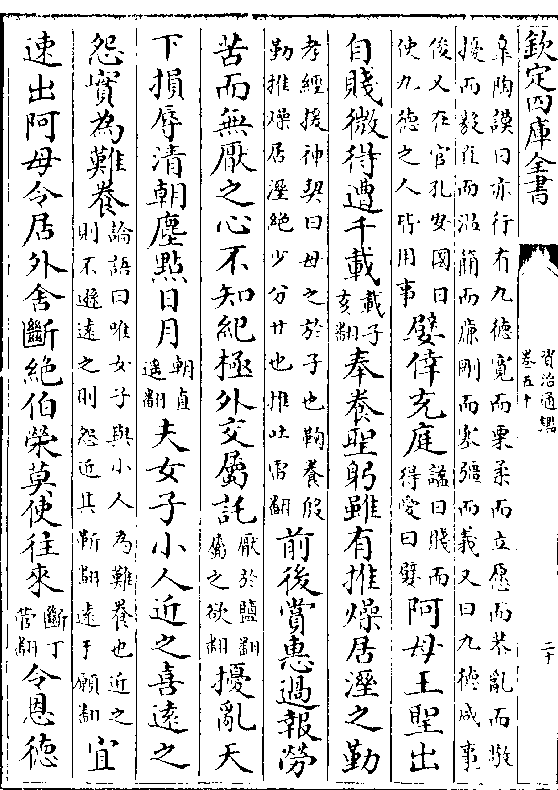 欽定四庫全書
資治通鑑
卷五十
二十
臯陶謨曰亦行有九德寛而栗柔而立愿而恭亂而敬
擾而毅直而温簡而廉剛而塞彊而義又曰九德咸事
俊乂在官孔安國曰
使九德之人皆用事
嬖倖充庭
諡曰賤而
得愛曰嬖
阿母王聖出
自賤微得遭千載
載子
亥翻
奉養聖躬雖有推燥居溼之勤
孝經援神契曰母之於子也鞠養殷
勤推燥居溼絶少分甘也推吐雷翻
前後賞惠過報勞
苦而無厭之心不知紀極外交屬託
厭於鹽翻
屬之欲翻
擾亂天
下損辱清朝塵點日月
朝直
遥翻
夫女子小人近之喜遠之
怨實為難養
論語曰唯女子與小人為難養也近之
則不遜遠之則怨近其靳翻遠于願翻
宜
速出阿母令居外舍斷絶伯榮莫使往來
斷丁
管翻
令恩德